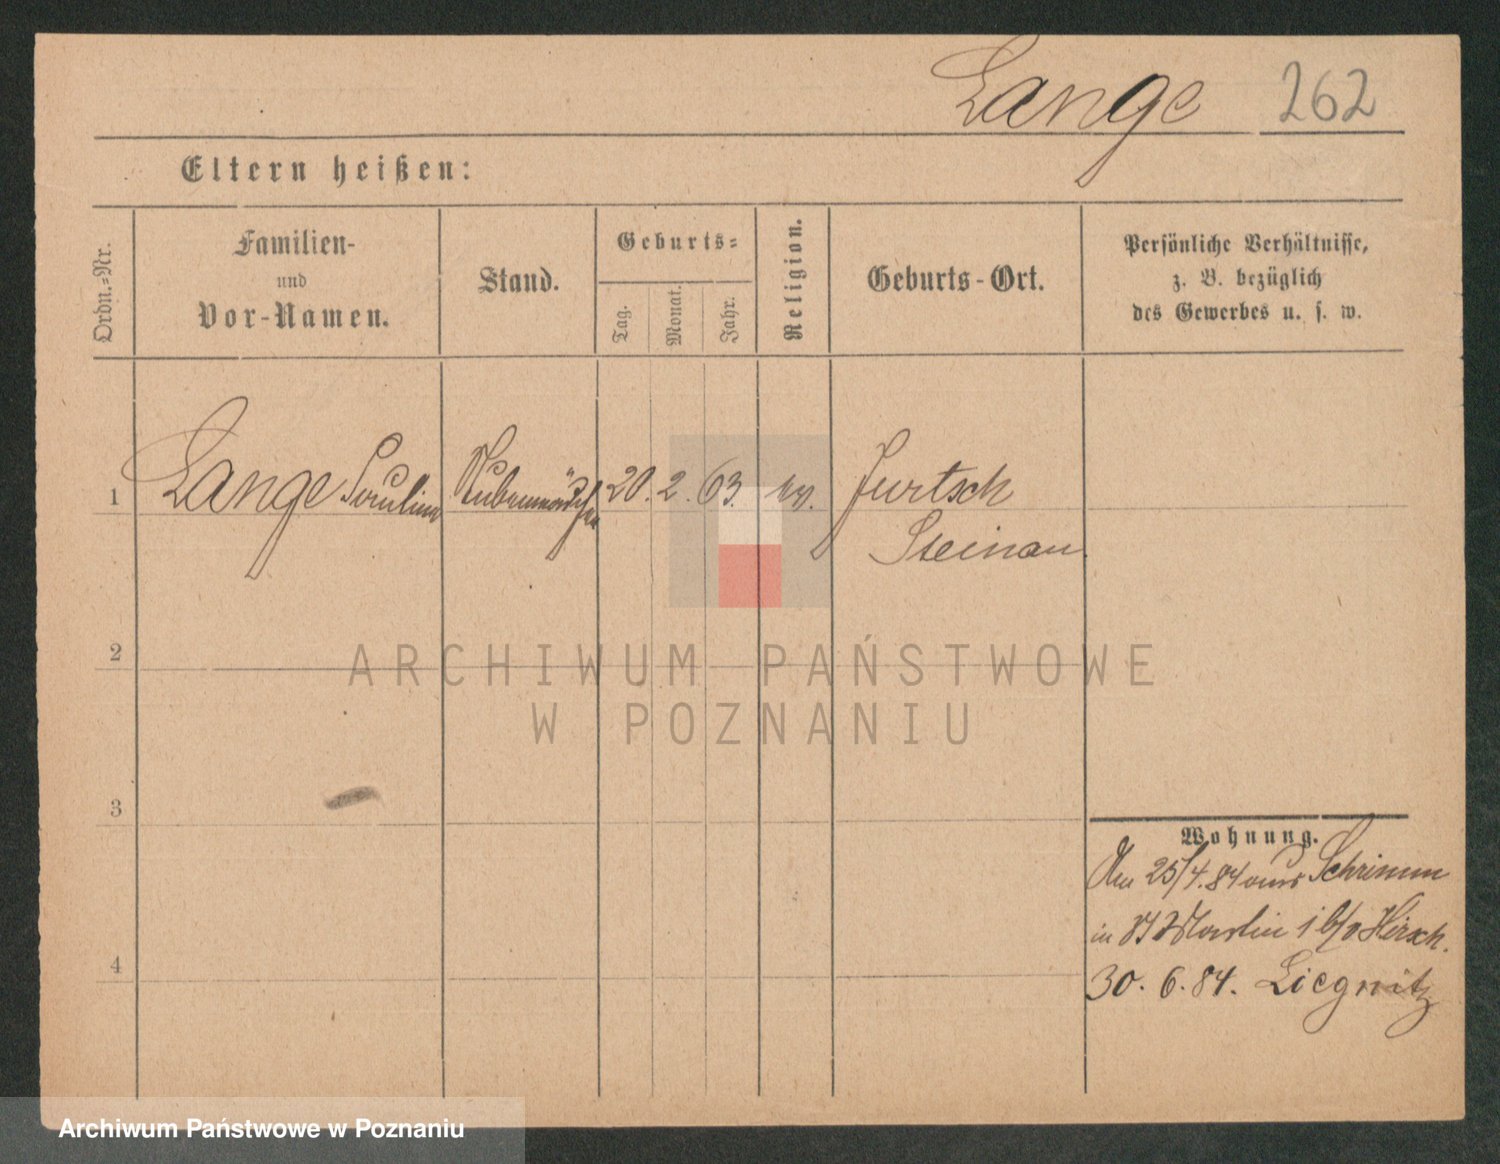 Lange 262
Eltern heißen:
Ordn.-Nr.
Familien-
und
Vor-Namen.
Stand.
Geburts-
Tag.
Monat.
Jahr.
Religion.
Geburts-Ort.
Persönliche Verhältnisse,
z. B. bezüglich
des Gewerbes u. s. w.
1 Lange Pauline Stubenmädchen 20. 2. 63. ev. Jurtsch
Steinau
2
ARCHIWUM PAŃSTWOWE
W POZNANIU
3
Wohnung.
25/4. 84 aus Schrimm
in St Martin 1 b/ Hirsch.
4
30. 6. 84. Liegnitz
Archiwum Państwowe w Poznaniu